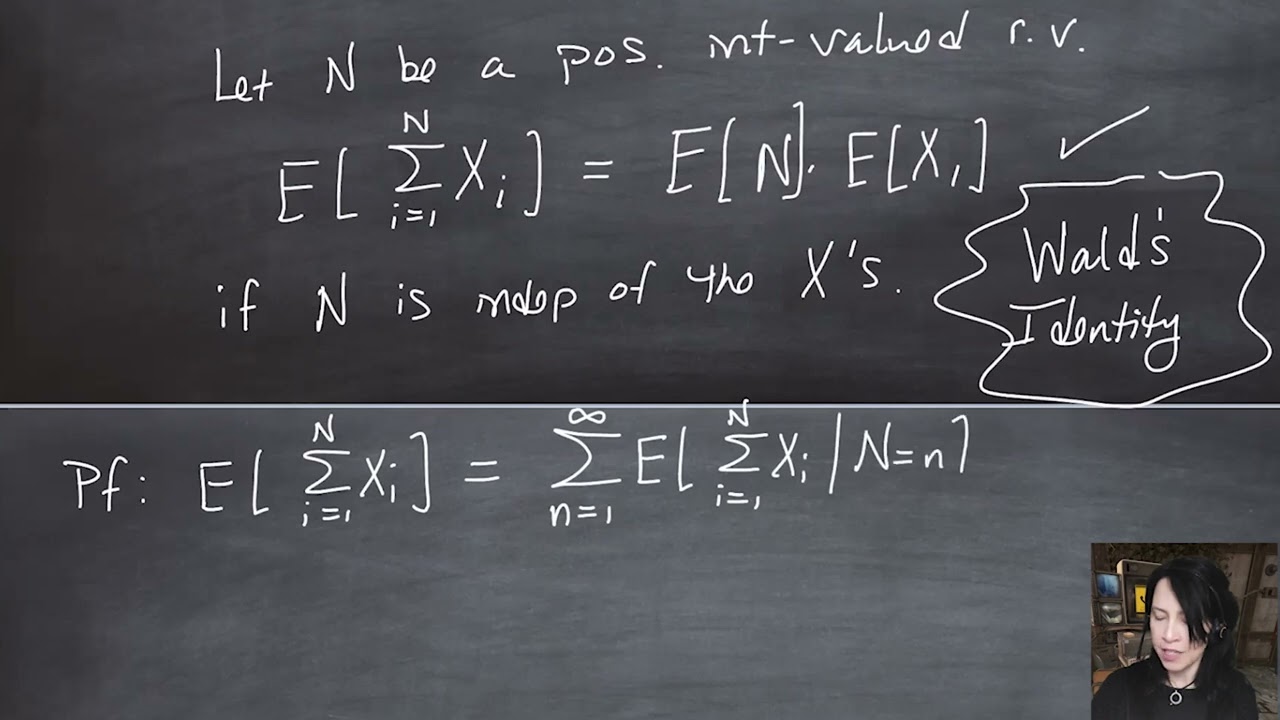 Let N be a pos. int-valued r.v.
E[ \sum_{i=1}^{N} X_i ] = E[N] · E[X_1] ✓
if N is indep of the X's.
Wald's
Identity
Pf: E[ \sum_{i=1}^{N} X_i ] = \sum_{n=1}^{∞} E[ \sum_{i=1}^{N} X_i | N=n ]